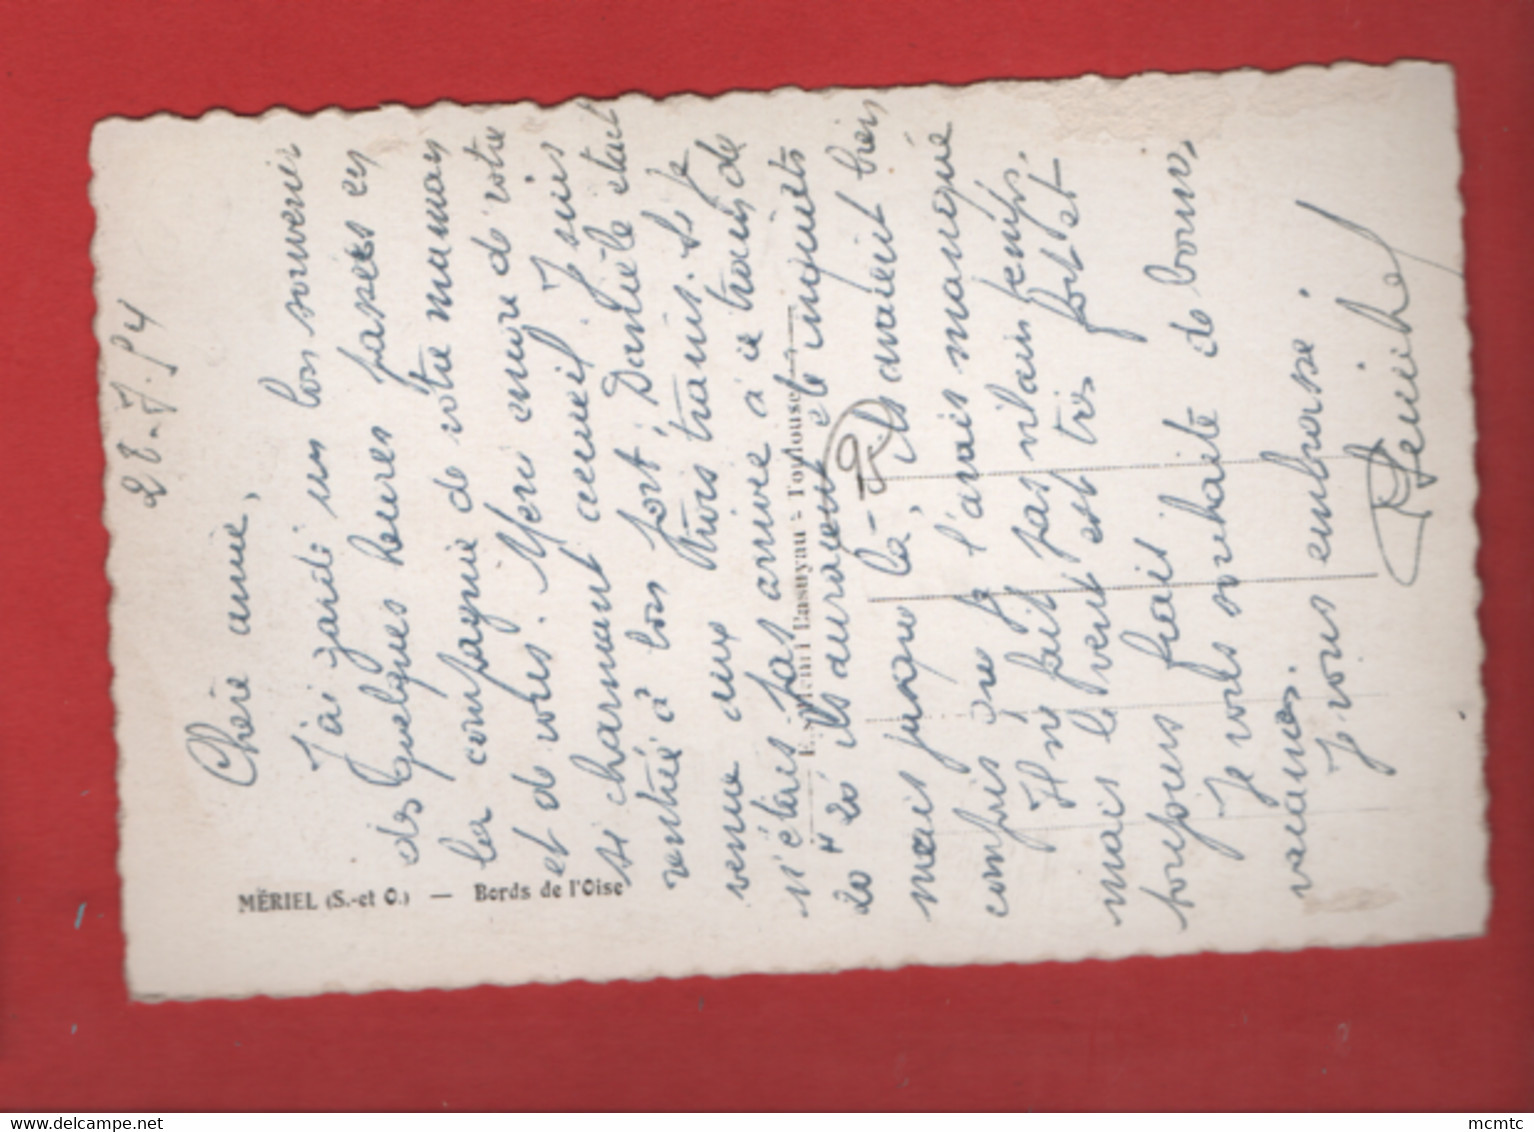 28-7-54
Chère amie,
J'ai gardé un bon souvenir
des quelques heures passées en
la compagnie de votre maman
et de vous. Merci encore de votre
si charmant accueil. Je suis
rentrée à bon port, Danièle était
venue aux trois trains. Si je
n'étais pas arrivée à ce train de
20 H 20 ils auraient été inquiets
mais jusque là, ils avaient bien
compris que je l'avais manqué
Il ne fait pas vilain temps.
mais le vent est très fort et
toujours frais
Je vous souhaite de bonnes
vacances.
Je vous embrasse.
MÉRIEL (S.-et O.) — Bords de l'Oise
Toulouse
mcmtc
delcampe.net